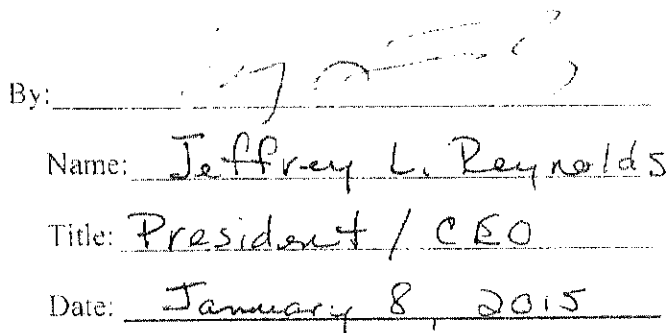 By:
Name: Jeffrey L. Reynolds
Title: President / CEO
Date: January 8, 2015